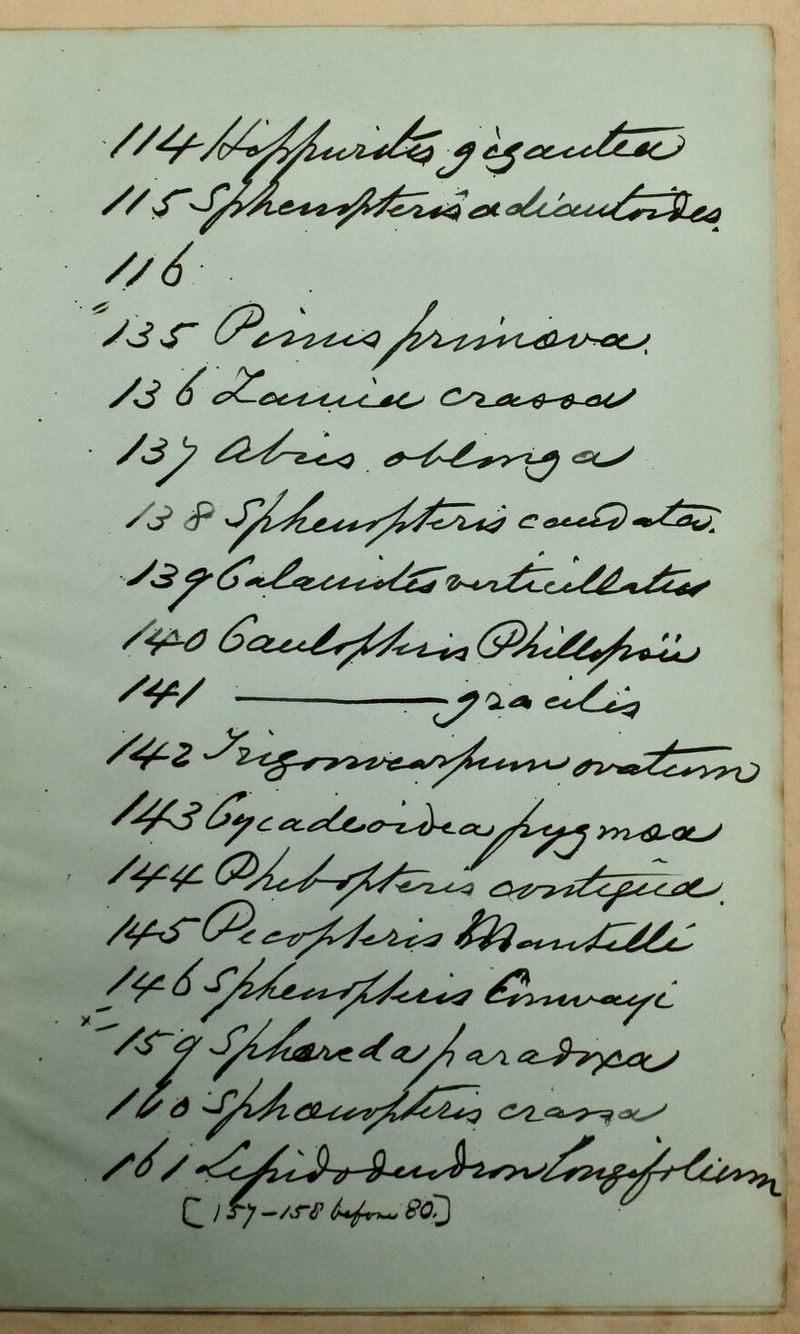 114 Hippurites gigantea
115 Sphenopteris adiantoides
116
" 135 Pinus primæva.
136 Zamia crassa
137 Abies oblonga
138 Sphenopteris caudata.
139 Calamites verticillatus
140 Caulopteris Phillipsii
141 ———— gracilis
142 Trigonocarpum ovatum
143 Cycadeoidea pygmæa
144 Phlebopteris contigua.
145 Pecopteris Mantelli
146 Sphenopteris Conwayi
x " 159 Sphæreda paradoxa
160 Sphænopteris crassa
161 Lepidodendron longifolium
[157-158 before 80.]